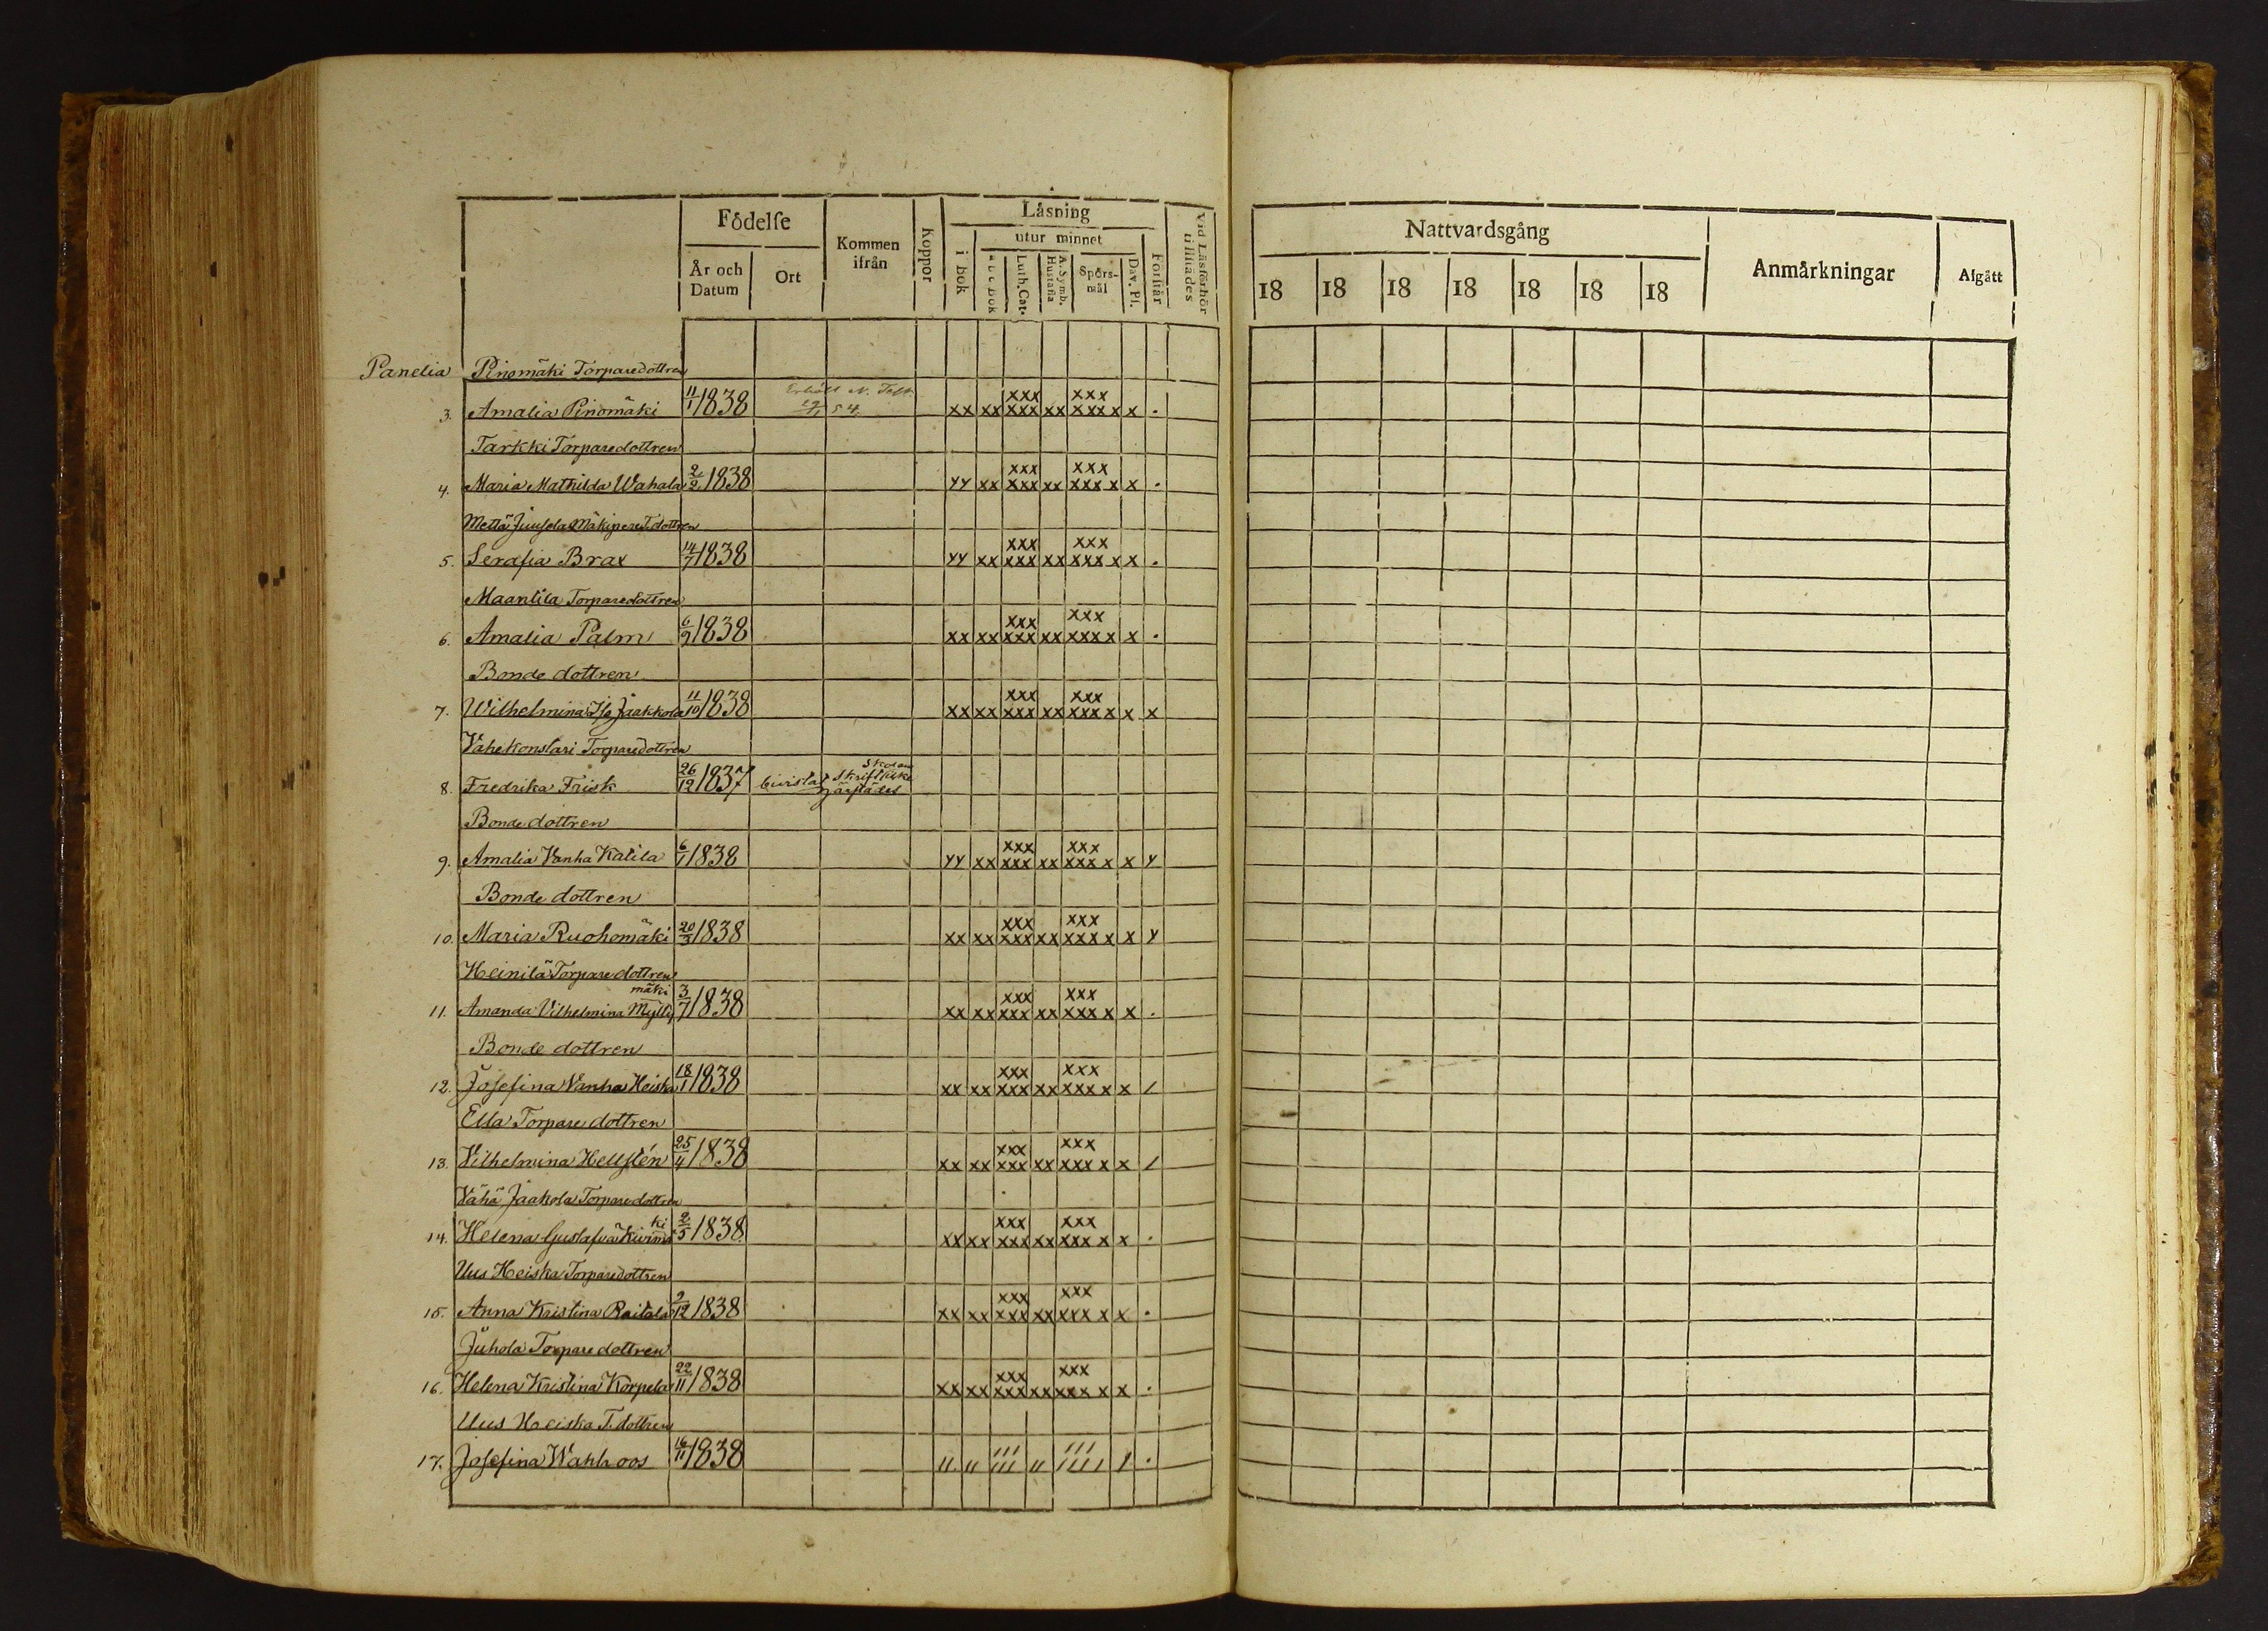 Födelse
År och Datum
Ort
Kommen ifrån
Koppor
Låsning
i bok
utur minnet
a b c bok
Luth. Cat.
A. Symb. Hustafla
Spörsmål
Dav. Pf.
Förstår
Vid Läsförhör tillstädes
Nattvardsgång
18 18 18 18 18 18 18
Anmårkningar
Afgått
Panelia Pinomäki Torparedottren
3. Amalia Pinomäki 11/1 1838 Erhöll N. Test. 54. xxx xxx xx xx xxx xx xxx x x .
Tarkki Torparedottren
4. Maria Mathilda Wahala 2/2 1838 xxx xxx yy xx xxx xx xxx x x .
Mettä Juusela Mäkipere T.dottren
5. Serafia Brax 14/7 1838 xxx xxx yy xx xxx xx xxx x x .
Maantila Torparedottren
6. Amalia Palm 6/9 1838 xxx xxx xx xx xxx xx xxx x x .
Bonde dottren
7. Wilhelmina Iso Jaakkola 11/10 1838 xxx xxx xx xx xxx xx xxx x x x
Vähekonstari Torparedottren
8. Fredrika Frisk 26/12 1837
Bonde dottren
9. Amalia Vanha Katila 6/1 1838 xxx xxx yy xx xxx xx xxx x x y
Bonde dottren
10. Maria Ruohomäki 20/3 1838 xxx xxx xx xx xxx xx xxx x x y
Heinilä Torpare dottren
11. Amanda Vilhelmina Mylly mäki 3/7 1838 xxx xxx xx xx xxx xx xxx x x .
Bonde dottren
12. Josefina Vanha Heiska 18/1 1838 xxx xxx xx xx xxx xx xxx x x /
Ella Torpare dottren
13. Vilhelmina Hellstén 25/4 1838 xxx xxx xx xx xxx xx xxx x x /
Vähä Jaakola Torparedottren
14. Helena Gustafva Kivimä ki 2/5 1838. xxx xxx xx xx xxx xx xxx x x .
Uus Heiska Torparedottren
15. Anna Kristina Raitala 9/12 1838 xxx xxx xx xx xxx xx xxx x x .
Juhola Torpare dottren
16. Helena Kristina Korpela 22/11 1838 xxx xxx xx xx xxx xx xxx x x .
Uus Heiska T. dottren
17. Josefina Wahlroos 16/11 1838 /// /// // // /// // //// / .